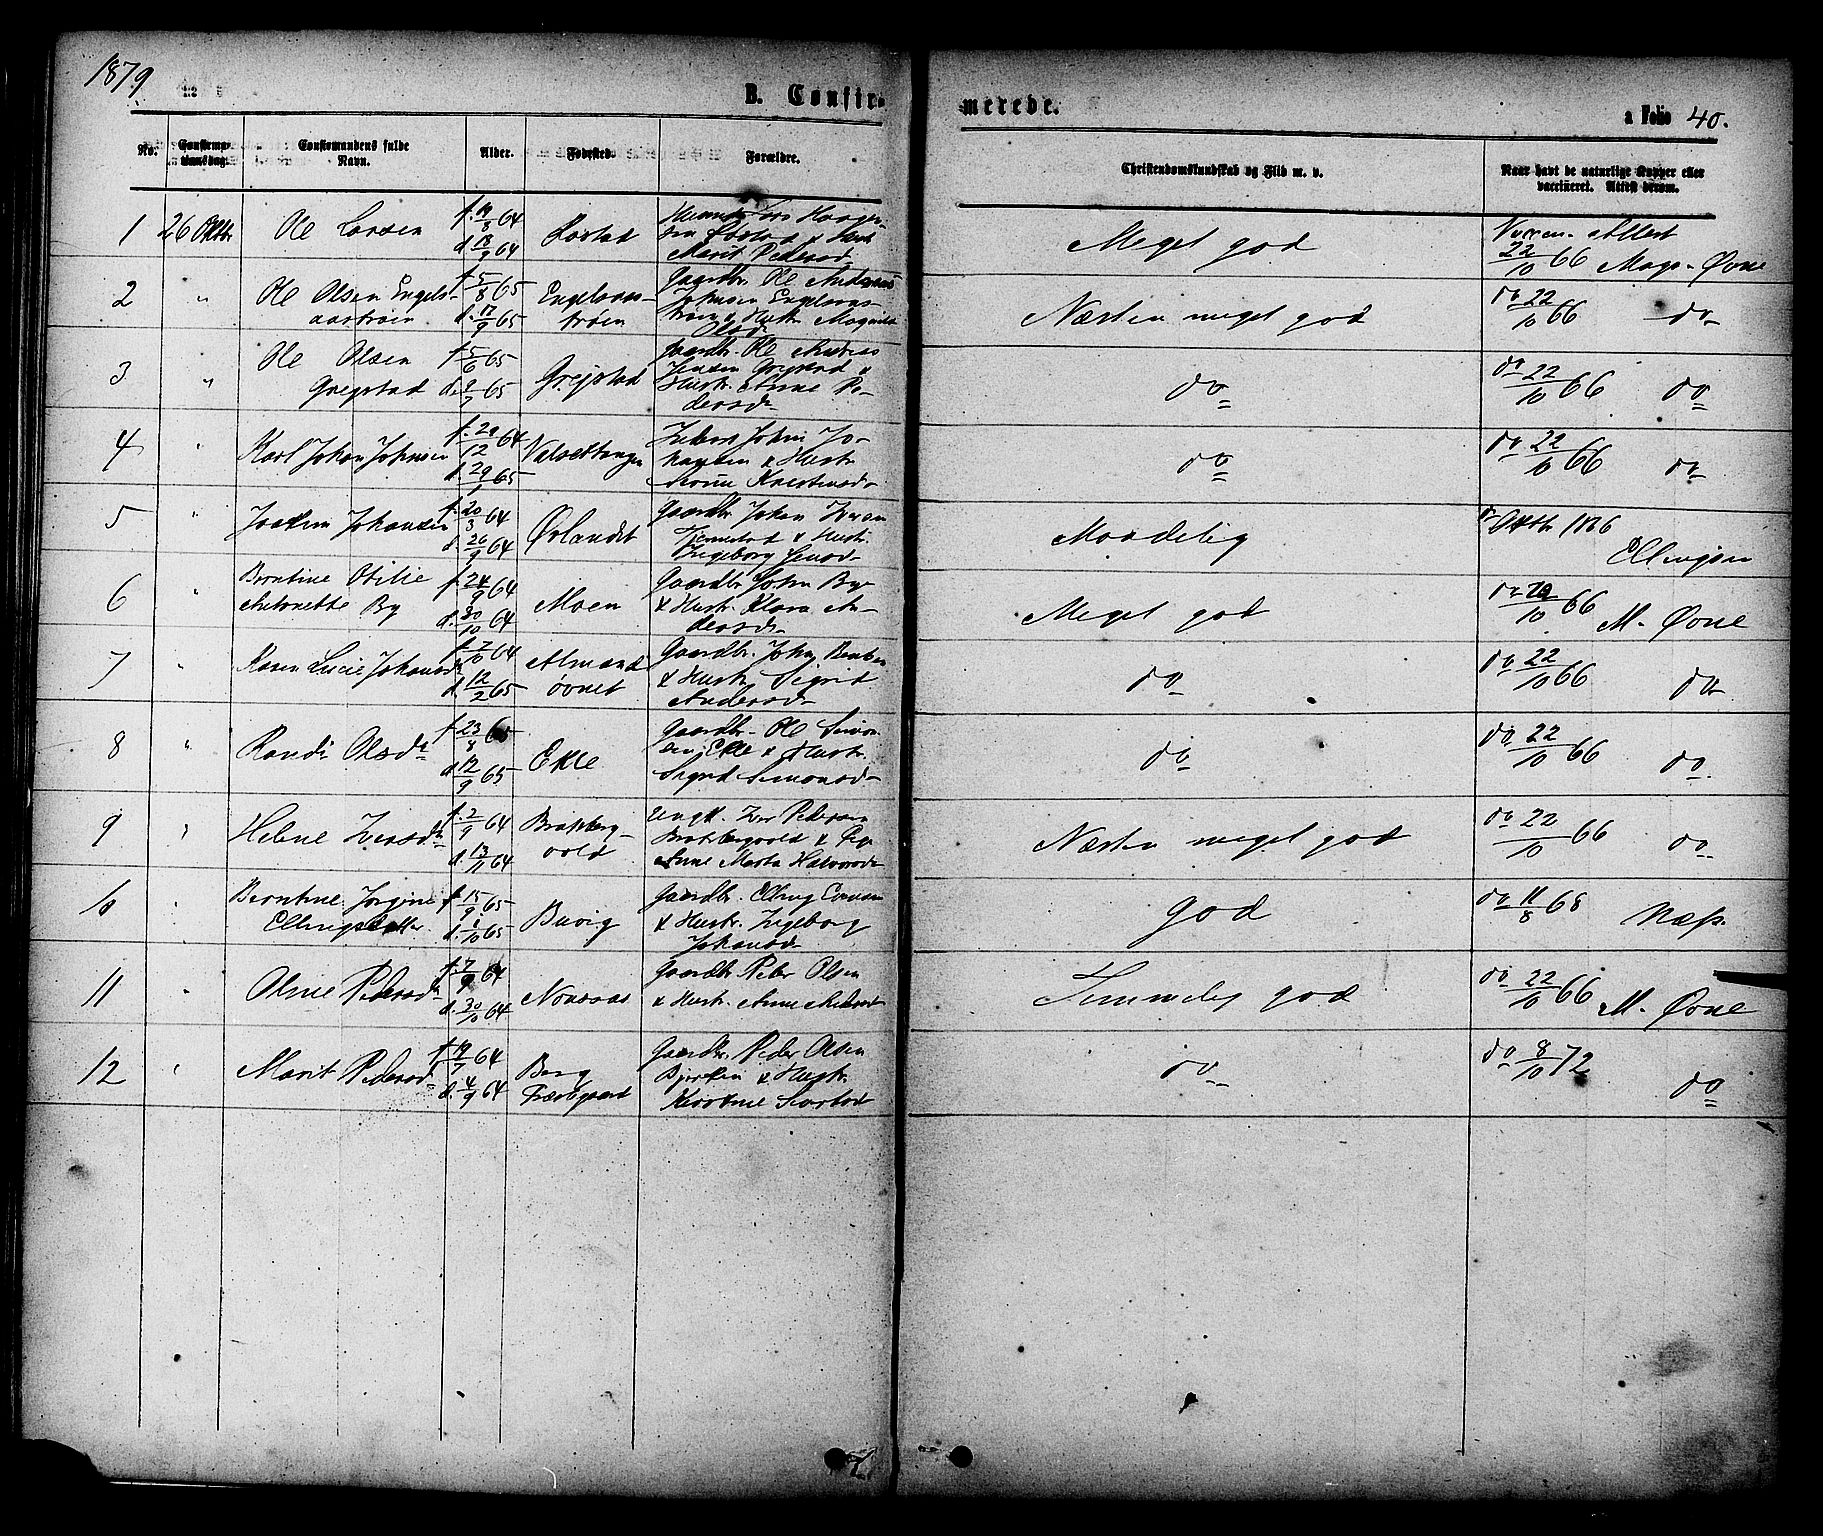 1879
B. Confirmerede.
a Folio 40.
No. Confirmationsdag. Confirmandens fulde Navn. Alder. Fødested. Forældre. Christendomskundskab og Flid m. v. Naar havt de naturlige Kopper eller vaccineret. Attest derom.
1 26 Oktbr Ole Larsen f. 19/8 64 d. 18/9 64 Lars Marit Pedersd. Meget god Vaccin. Attest 22/10 66 Øvne
2 " Ole Olsen Engelsaastrøen f. 5/8 65 d. 17/9 65 Engelsaastrøen Gaardbr. Ole Andreas Johnsen Engelsaastrøen & Hustr. Olsd. Næsten meget god do 22/10 66 do
3 " Ole Olsen Grejstad f. 5/6 65 Grejstad Gaardbr. Ole Andreas Jensen Grejstad & Hustr. Anne Pedersdr. do do 22/10 66 do
4 " Karl Johan Johnsen d. 29/1 65 John Johansen & Hustr. do do 22/10 66 do
5 " Joakim Johansen f. 20/3 64 d. 26/9 64 Ørlandet Gaardbr. Johan & Hustr. Ingeborg Maadelig do Oktbr Ellingsen
6 " Berntine Otilie Antonette By f. 24/9 64 d. 30/10 64 Moen Gaardbr. John By & Hustr. Klara Andersdr. Meget god do 22/10 66 M. Øvne
7 " Karen Lucie Johansdr f. 7/10 64 d. 12/2 65 Almand øvnet Gaardbr. Johan & Hustr. Sigrid Andersdr. do do 22/10 66 do
8 " Randi Olsdr f. 23/8 65 d. 17/9 65 Ekle Gaardbr. Ole Simonsen Ekle & Hustr. Sigrid Simonsdr. do do 22/10 66 do.
9 " Helene Iversdr f. 2/9 64 d. 13/11 64 Iver Pedersen & Pige Anne Marta Halvorsdr Næsten meget god do 22/10 66 do
10 " Berntine Jørgine Ellingsdatter f. 15/9 65 d. /10 65 Buvig Gaardbr. Elling & Hustr. Ingeborg Johansd. god do 11/8 68 Næss.
11 " Oline Pedersdr f. 7/9 64 d. 30/10 64 Gaardbr. Peder Olsen & Hustr. Anne Temmelig god do 22/10 66 M. Øvne
12 " Marit Pedersdr f. 19/7 64 d. 4/9 64 Berg Gaardbr. Peder Olsen & Hustr. do do 8/10 72 do